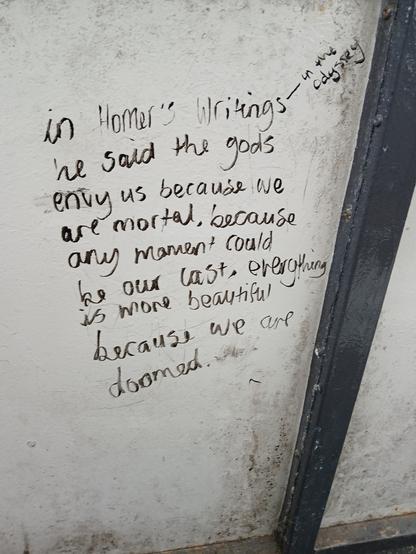 in Homer's Writings — in the
odyssey
he said the gods
envy us because we
are mortal, because
any moment could
be our last, everything
is more beautiful
because we are
doomed.